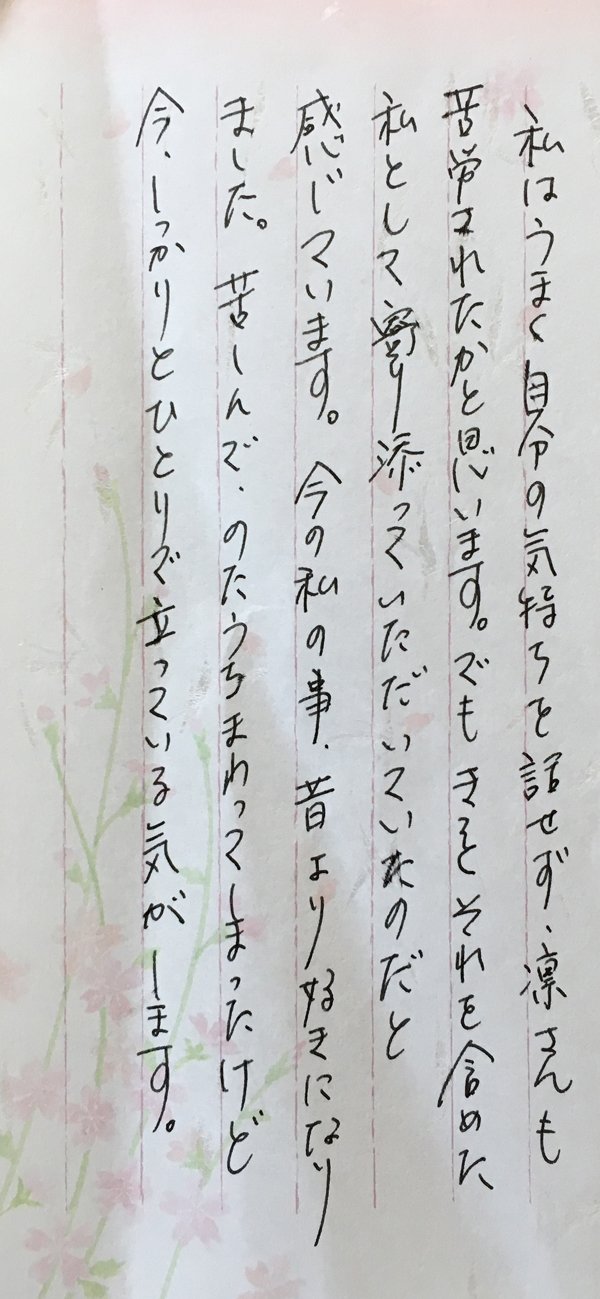 私はうまく自分の気持ちを話せず、凛さんも
苦労されたかと思います。でもきっとそれを含めた
私として寄り添っていただいていたのだと
感じています。今の私の事、昔より好きになり
ました。苦しんで、のたうちまわってしまったけど
今、しっかりとひとりで立っている気がします。